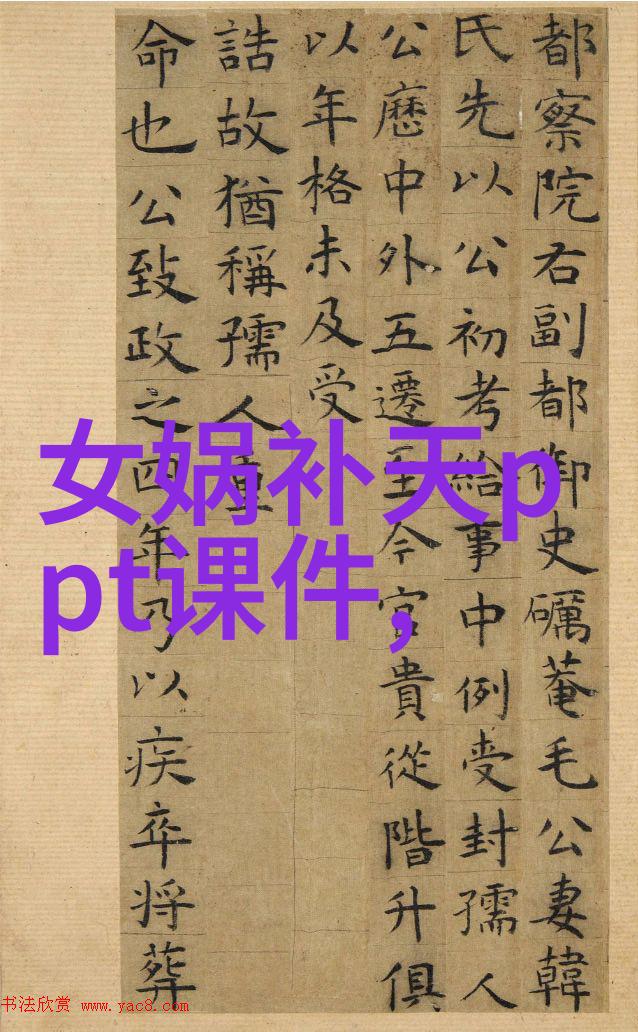 都察院右副都御史礪菴毛公妻韓
氏先以公初考給事中例受封孺人
公歷中外五遷至今官貴從階升俱
以年格未及受
誥故猶稱孺人重
命也公致政之四年乃以疾卒将葬
女娲补天p
pt课件,
书法欣赏 www.yac8.com